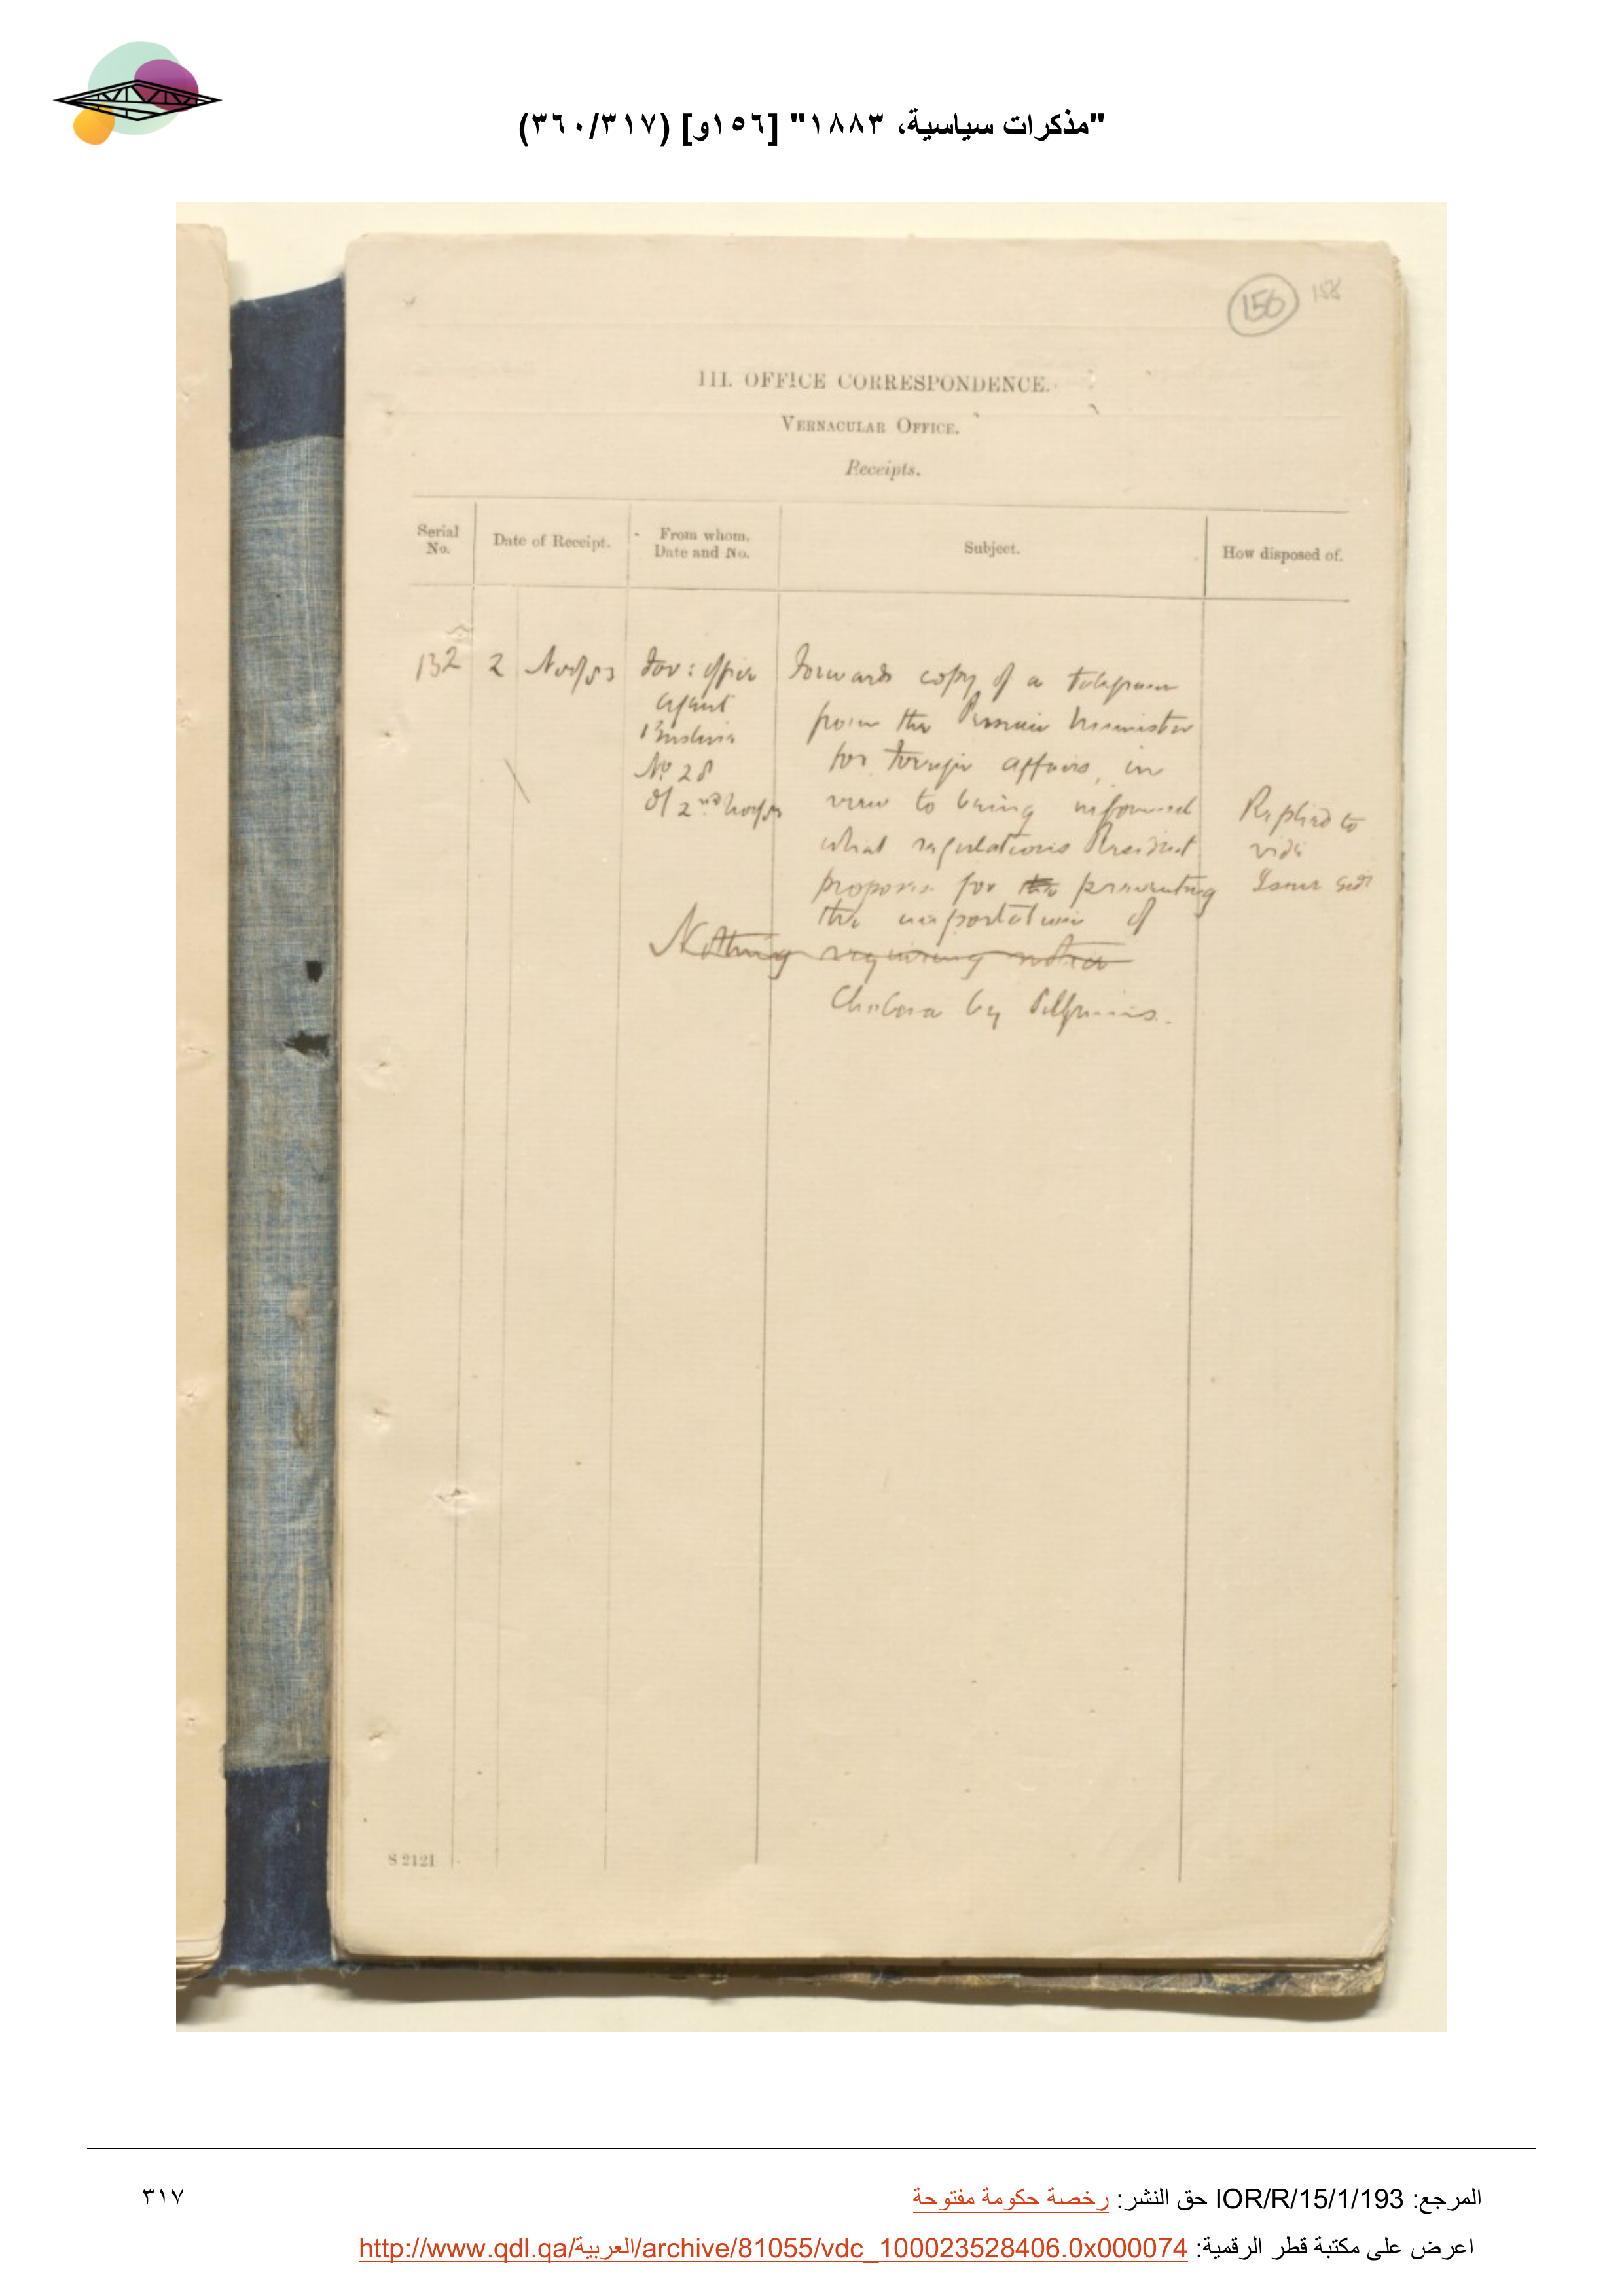 "مذكرات سياسية، ١٨٨٣" [١٥٦و] (٣٦٠/٣١٧)
156 158
III. OFFICE CORRESPONDENCE.
VERNACULAR OFFICE.
Receipts.
Serial No.
Date of Receipt.
From whom. Date and No.
Subject.
How disposed of.
132 2 Nov/83 For: office Forwards copy of a telegram
agent from the Persian Minister
Bushire for Foreign affairs, in
No 28 view to being informed
of 2nd Nov/83 what regulations Resident
proposes for the preventing
the importation of
Nothing requiring notice
Cholera by Pilgrims.
Replied to
vide
Issue
S 2121
المرجع: IOR/R/15/1/193 حق النشر: رخصة حكومة مفتوحة
٣١٧
اعرض على مكتبة قطر الرقمية: http://www.qdl.qa/العربية/archive/81055/vdc_100023528406.0x000074